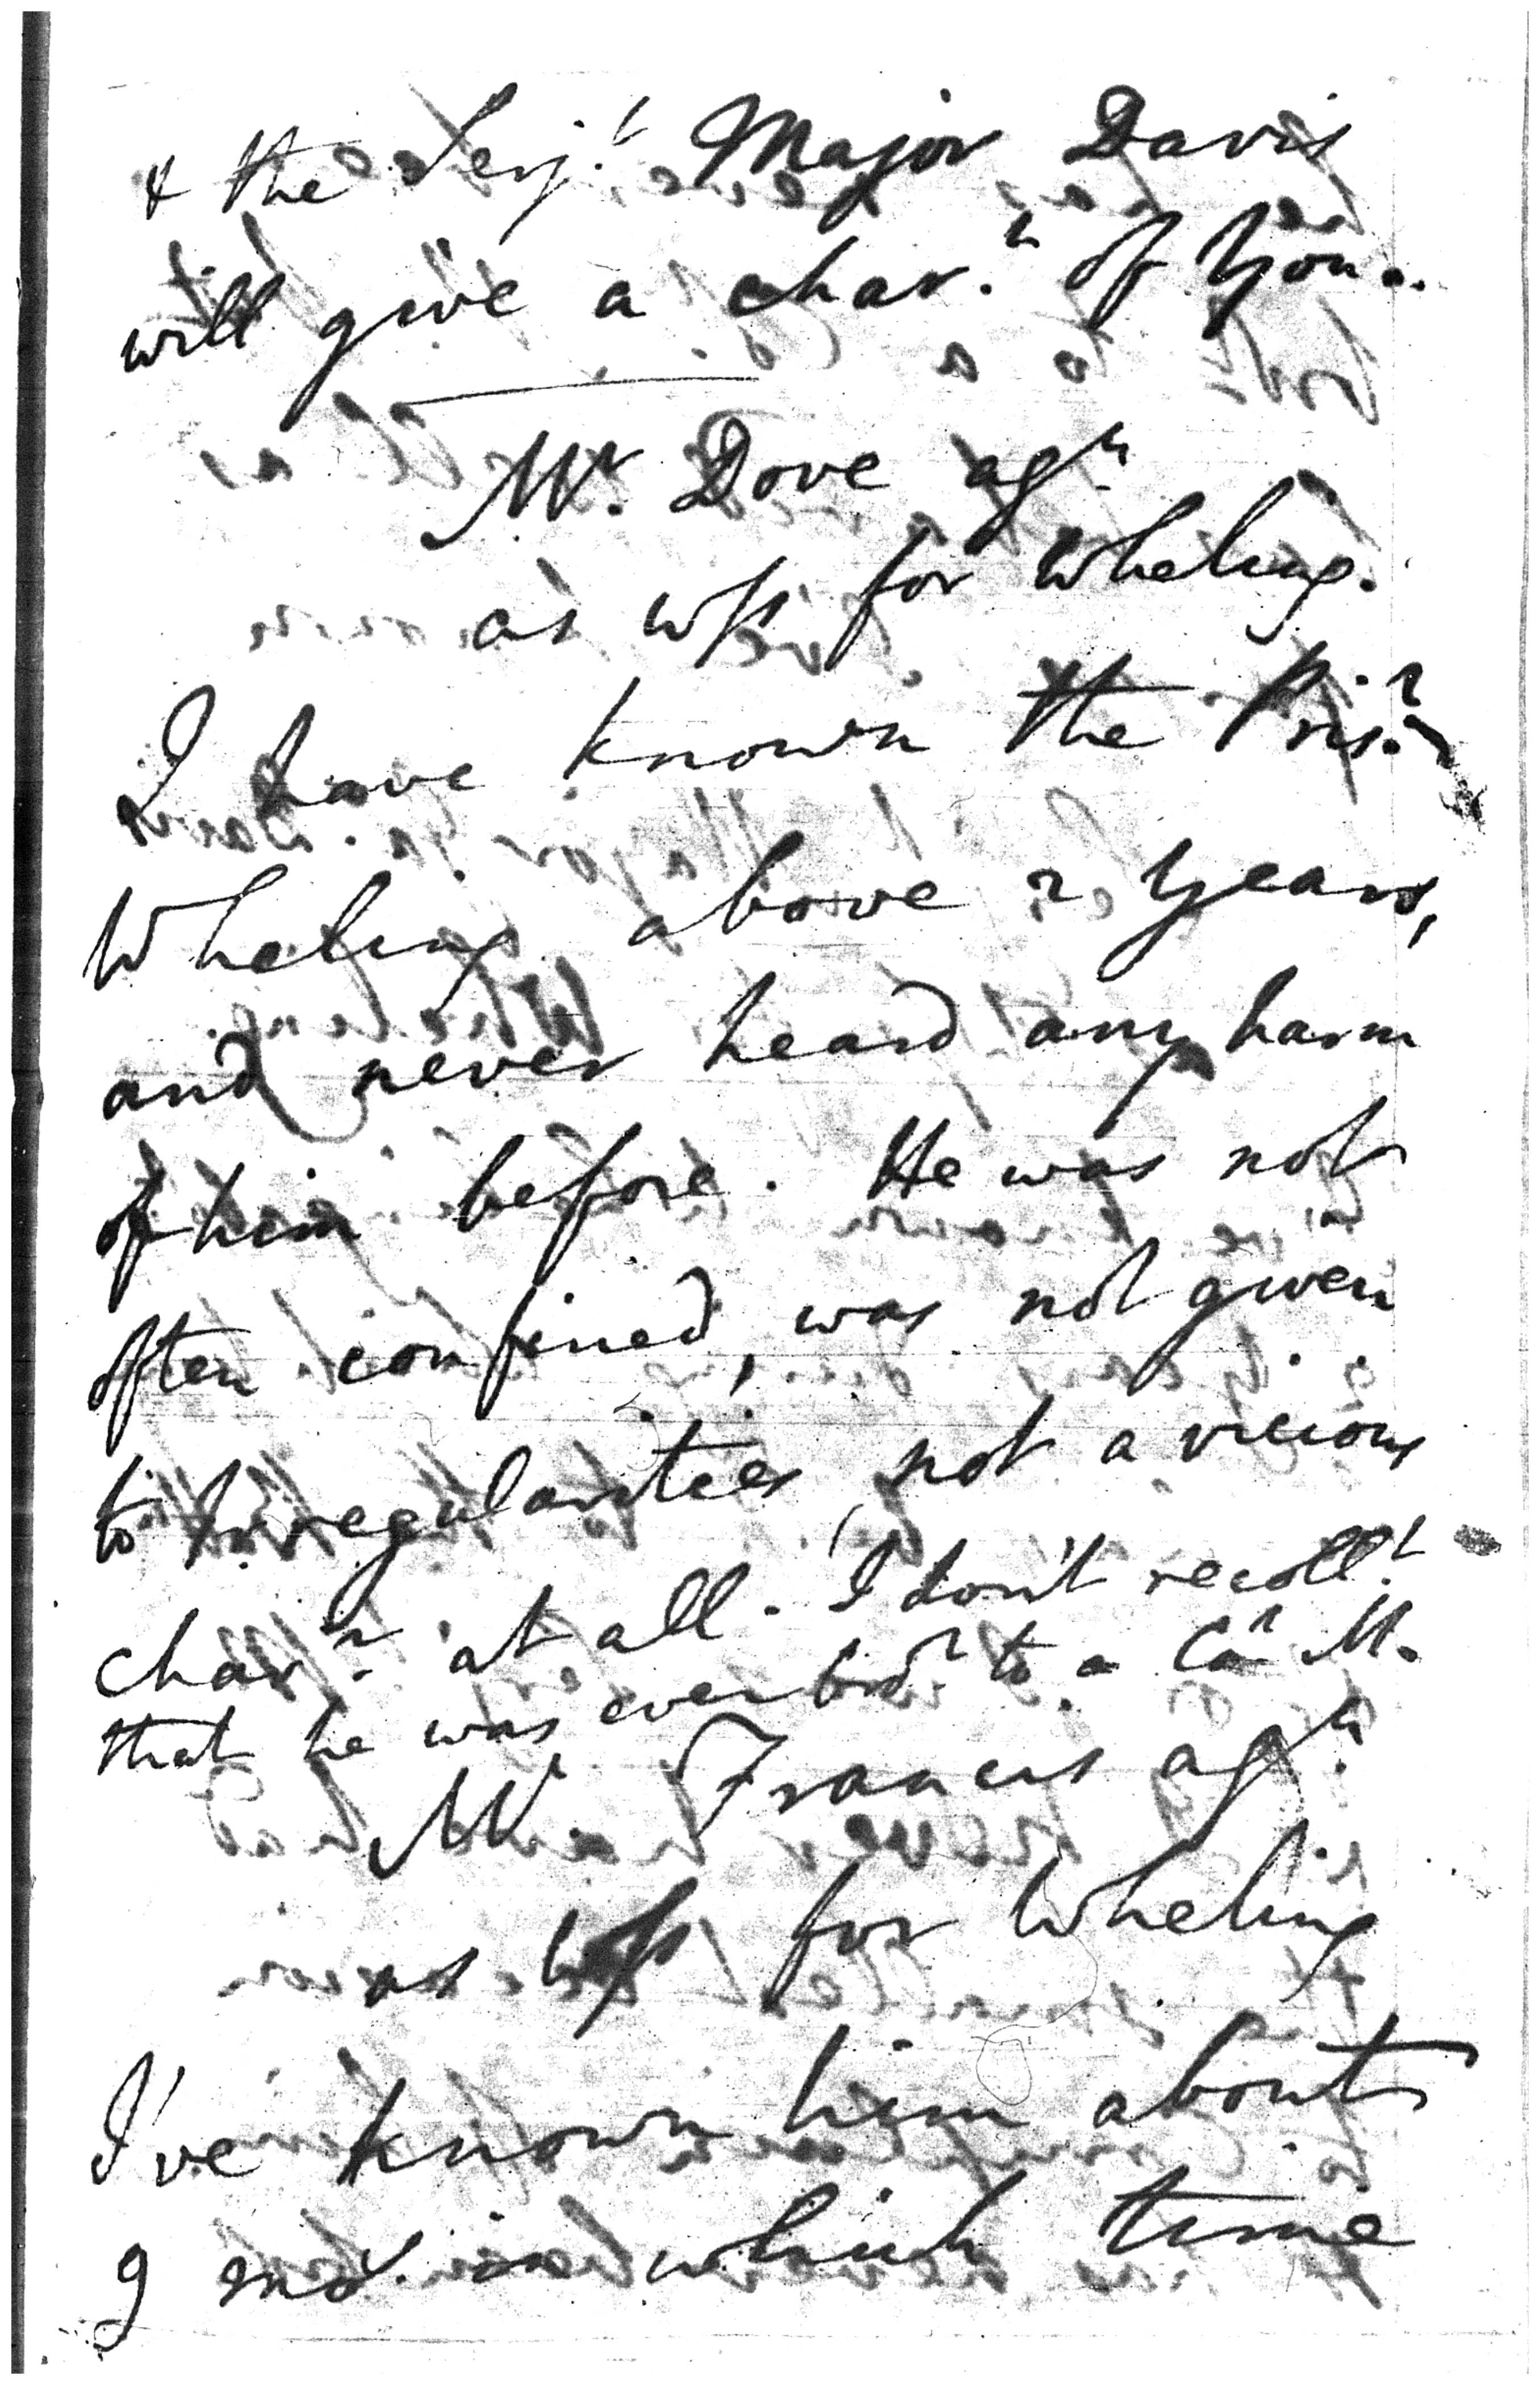 & the Serj.t Major Davis
will give a char.r of You..
Mr. Dove ag.n
as wss for Wheling.
I have known the Pris.r
Wheling above 2 Years,
and never heard any harm
of him before. He was not
often confined, was not given
to Irregularities, not a vicious
char.r at all. I don't recoll.t
that he was ever bro.t to a Co.t M.
Mr. Francis ag.n
as wss for Wheling
I've known him about
9 mo. in which time